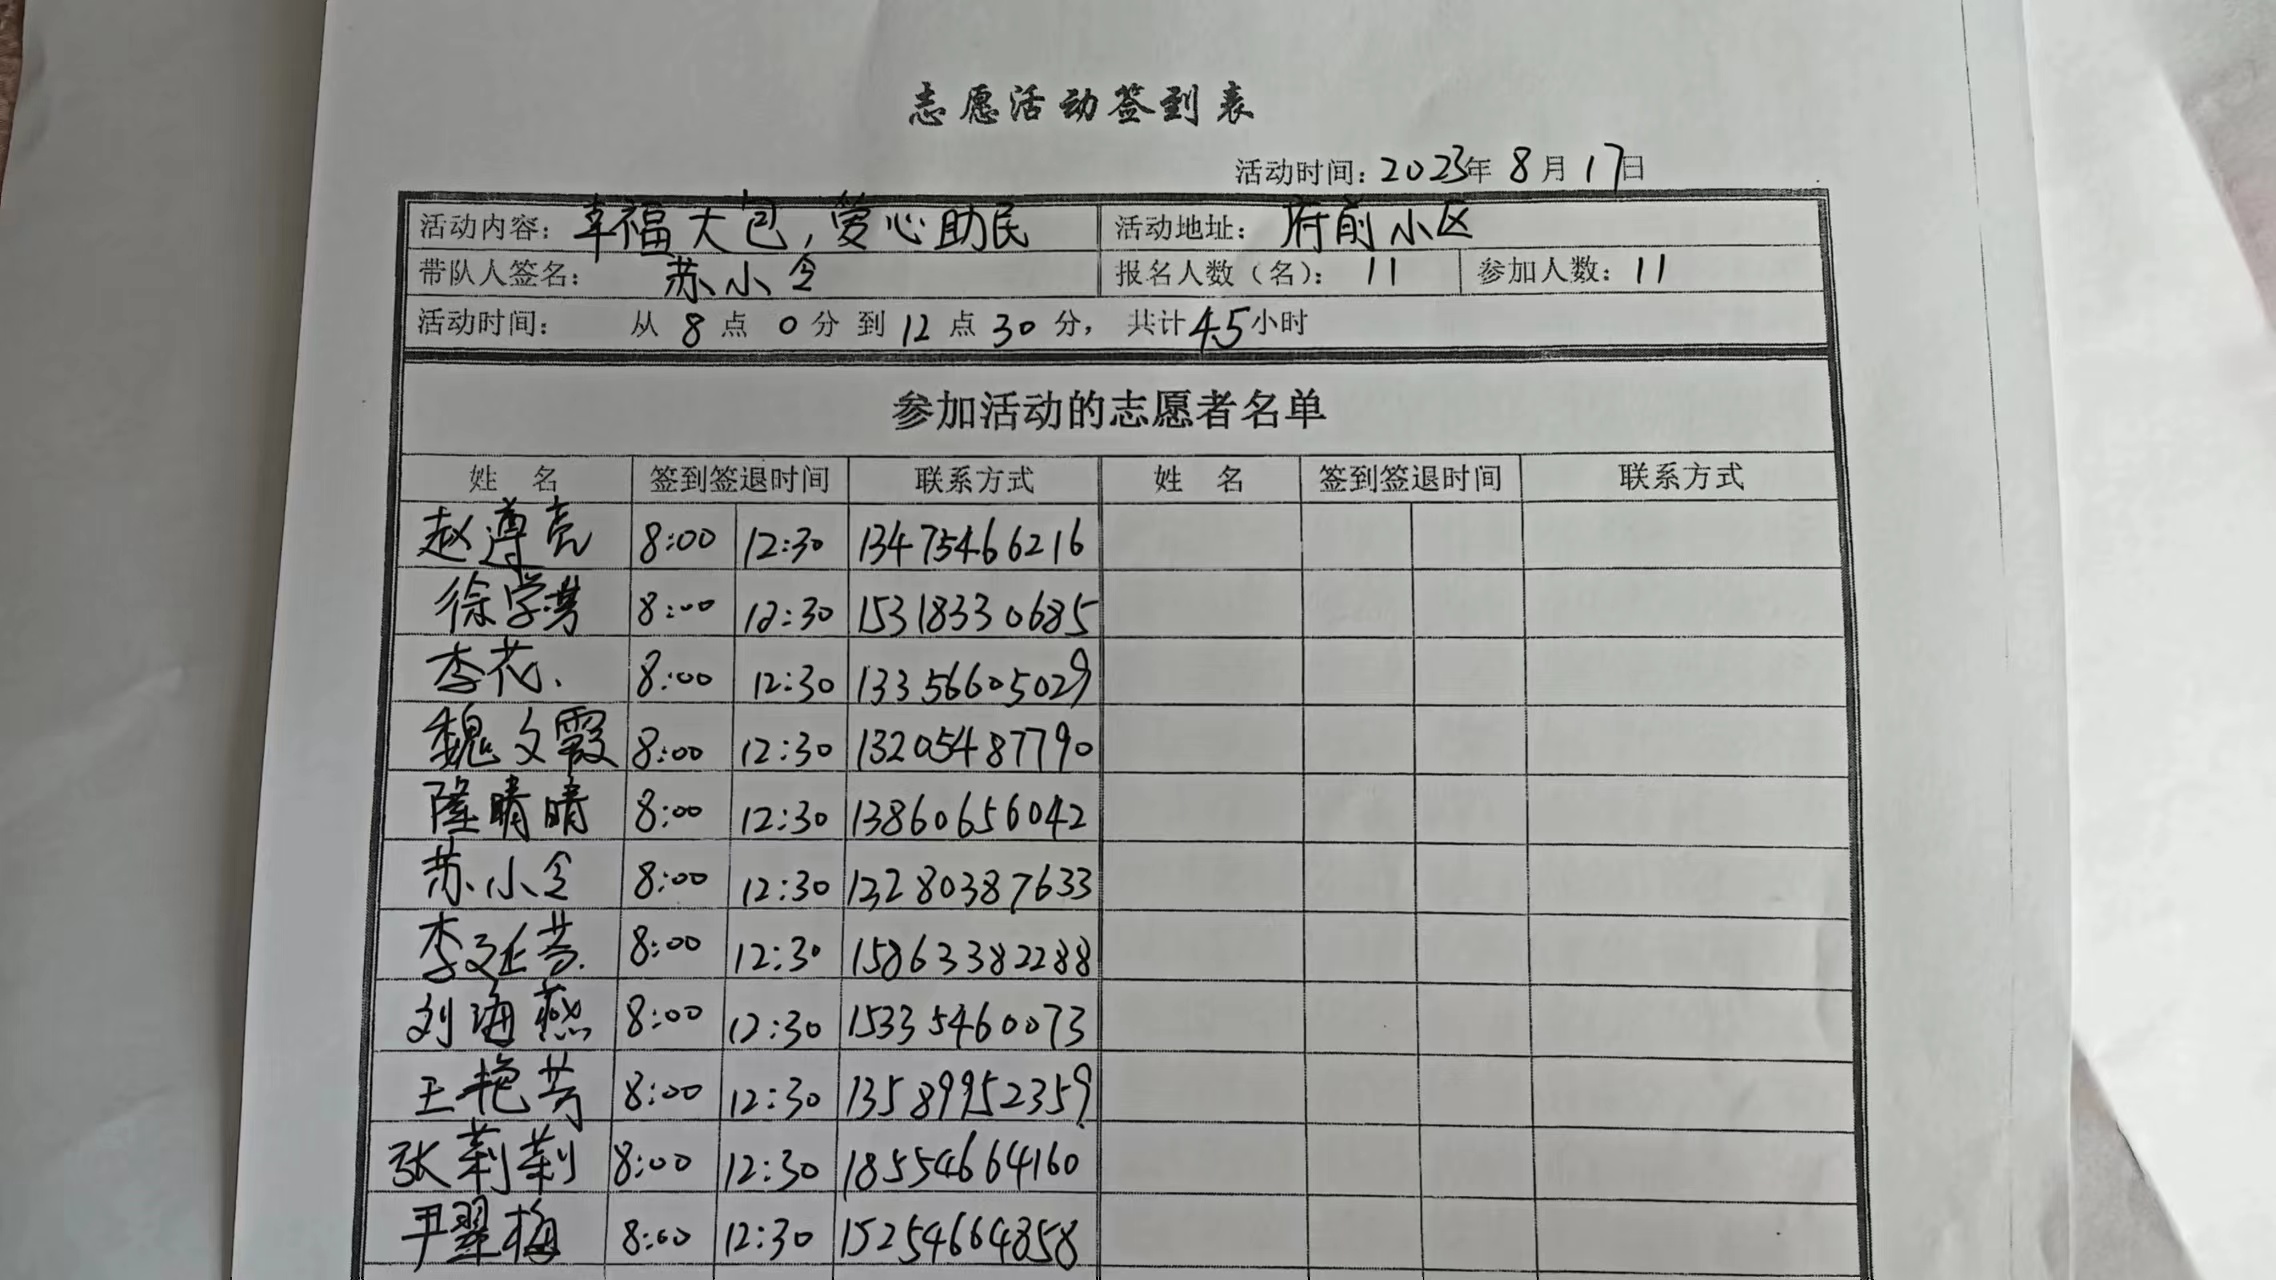 志愿活动签到表
活动时间：2023年 8月 17日
活动内容：幸福大包，爱心助民 活动地址：府前小区
带队人签名：苏小令 报名人数（名）：11 参加人数：11
活动时间：从 8 点 0 分 到 12 点 30 分，共计 4.5 小时
参加活动的志愿者名单
姓 名 签到签退时间 联系方式 姓 名 签到签退时间 联系方式
赵遵亮 8:00 12:30 13475466216
徐学 8:00 12:30 15318330685
李花 8:00 12:30 13356605029
魏文霞 8:00 12:30 13205487790
隆晴晴 8:00 12:30 13860656042
苏小令 8:00 12:30 13280387633
李延芳 8:00 12:30 15863382288
刘海燕 8:00 12:30 15335460073
王艳芳 8:00 12:30 13589952359
张莉莉 8:00 12:30 18554664160
尹翠梅 8:00 12:30 15254664858